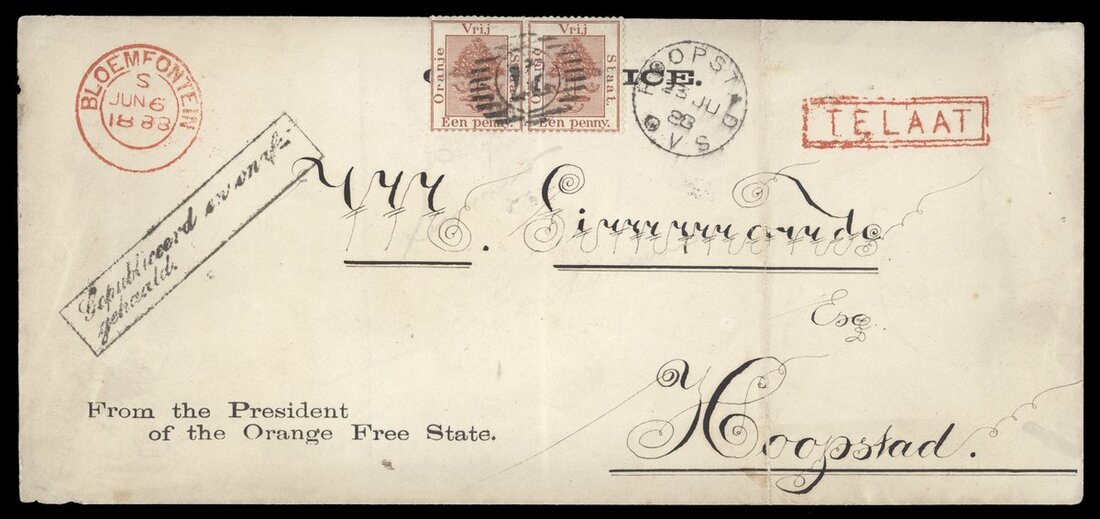 BLOEMFONTEIN
S
JUN 6
1888
Vrij
Oranje
Een penny.
Vrij
Staat.
Een penny.
ICE.
HOOPSTAD
JU
88
TELAAT
Gepubliceerd en onafge-
gehaald.
Esq
Hoopstad.
From the President
of the Orange Free State.